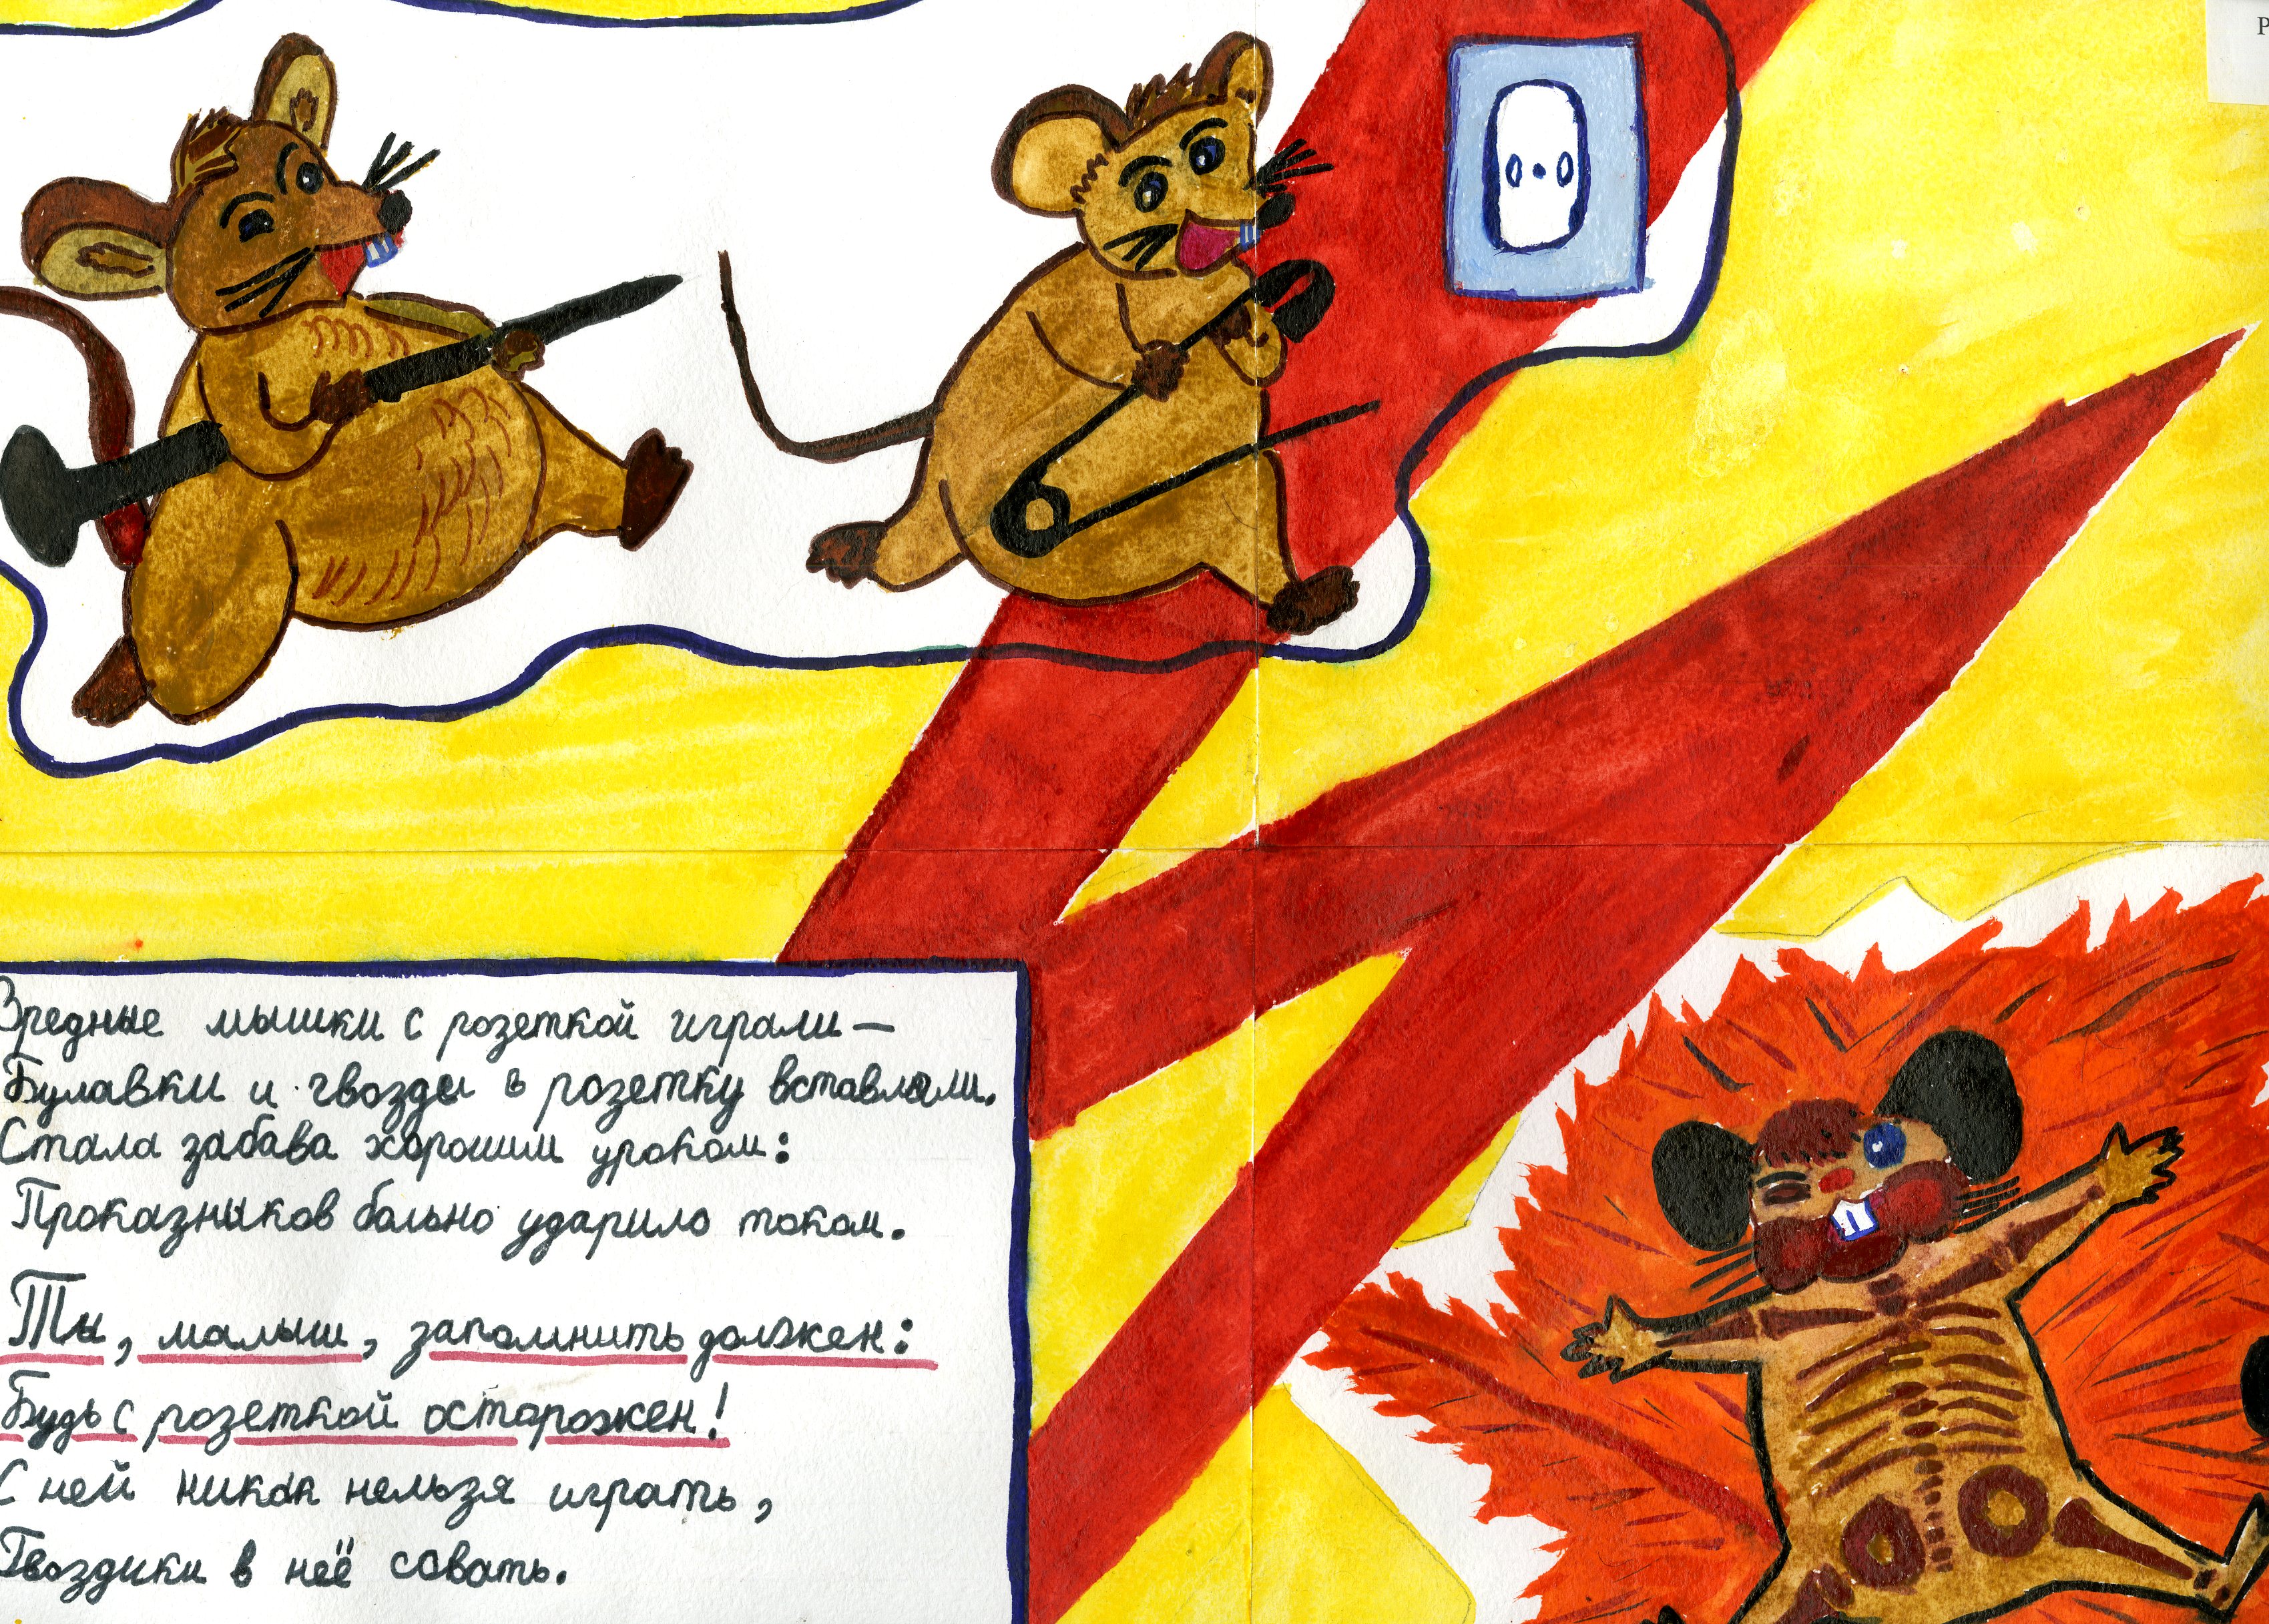 Р
Вредные мышки с розеткой играли —
Булавки и гвозды в розетку вставляли.
Стала забава хорошим уроком:
Проказников больно ударило током.
Ты, малыш, запомнить должен:
Будь с розеткой осторожен!
С ней никак нельзя играть,
Гвоздики в неё совать.